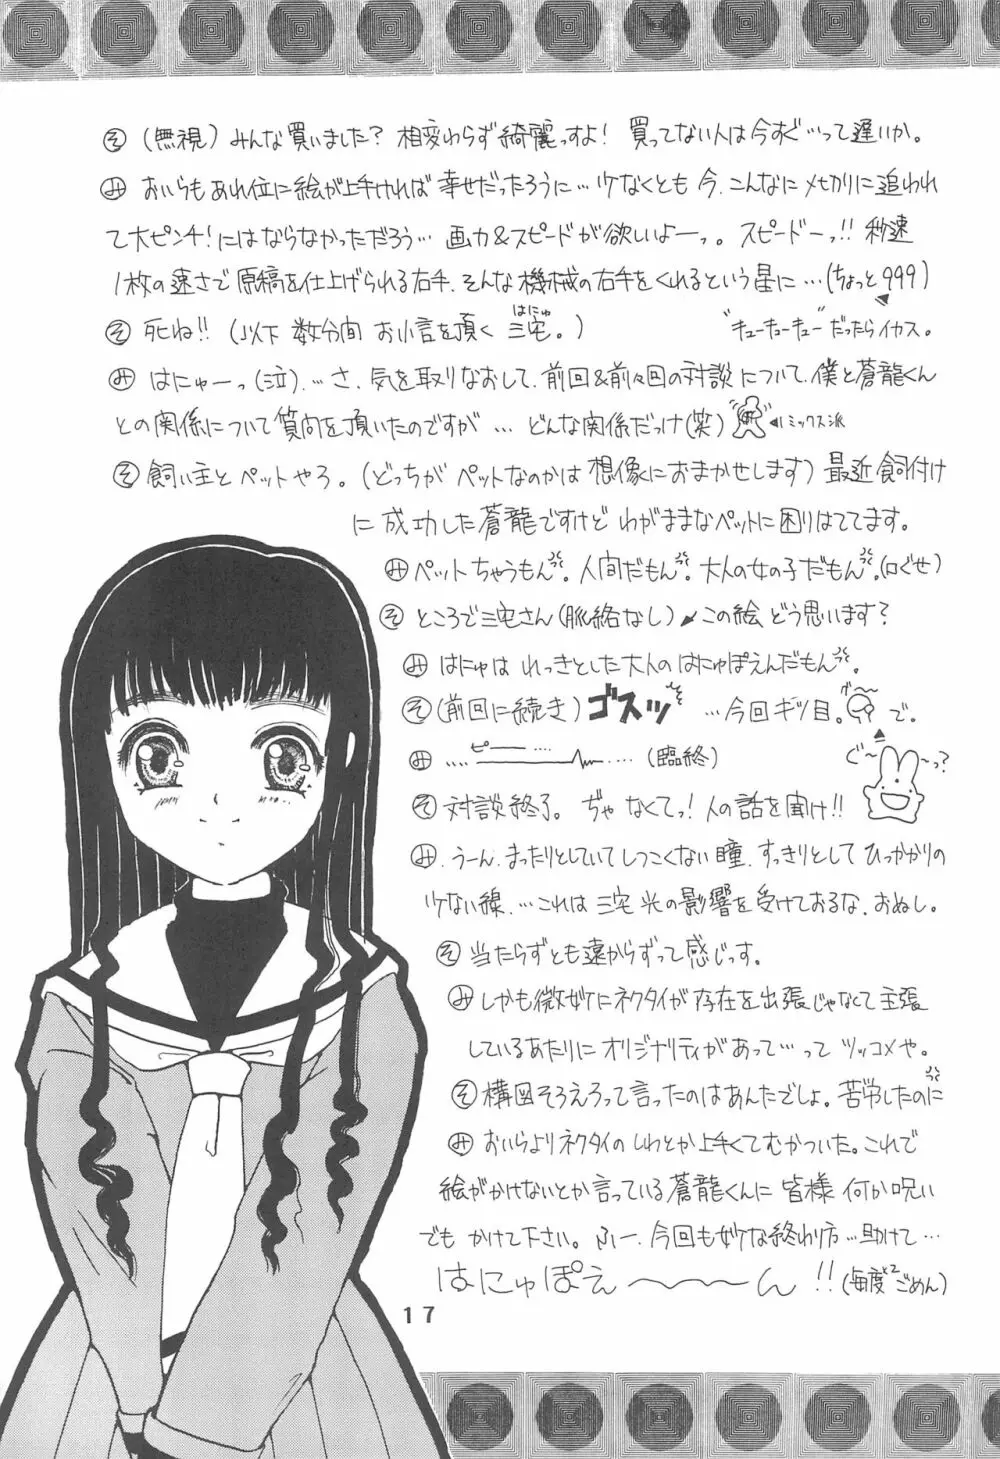 そ (無視) みんな買いました? 相変わらず綺麗っすよ! 買ってない人は今すぐ…って遅いか。
み おいらもあれ位に絵が上手ければ 幸せだったろうに…少なくとも 今、こんなに メセカリに追われ
て大ピンチ!にはならなかっただろう… 画力&スピードが欲しいよーっ。スピードーっ!! 秒速
1枚の速さで 原稿を仕上げられる右手、そんな 機械の右手をくれるという星に…(ちょっと999)
そ 死ね!! (以下 数分間 お小言を頂く 三宅。)
はにゅ
"キューキューキュー"だったらイカス。
み はにゅーっ(泣)…さ、気を取りなおして、前回&前々回の対談について、僕と蒼龍くん
との関係について質問を頂いたのですが … どんな関係だっけ(笑)
リミックス派
そ 飼い主とペットやろ。(どっちが ペットなのかは 想像におまかせします) 最近 飼付け
に 成功した蒼龍ですけど わがままなペットに困りはててます。
み ペットちゃうもん。人間だもん。大人の女の子だもん。(口ぐせ)
そ ところで三宅さん(脈絡なし) この絵 どう思います?
み はにゅは れっきとした大人の はにゅぽえんだもん。
そ (前回に続き) ゴスッ …今回ギッ目。で。
み …. ピー ….…. (臨終)
ぐ〜〜っ?
そ 対談終了。ぢゃ なくてっ! 人の話を聞け!!
み、うーん、まったりとしていてしつこくない瞳、すっきりとして ひっかかりの
少ない線、…これは 三宅 光の影響を受けておるな、おぬし。
そ 当たらずとも遠からずって感じっす。
み しかも微妙にネクタイが 存在を出張じゃなくて主張
しているあたりに オリジナリティがあって…って ツッコメや。
そ 構図そろえろって言ったのはあんたでしょ。苦労したのに
み おいらよりネクタイの しわとか上手くてむかついた。これで
絵がかけないとか言っている蒼龍くんに 皆様 何か呪い
でも かけて下さい。ふー、今回も妙な終わり方…助けて…
はにゅぽえ〜〜〜ん!! (毎度×2ごめん)
17